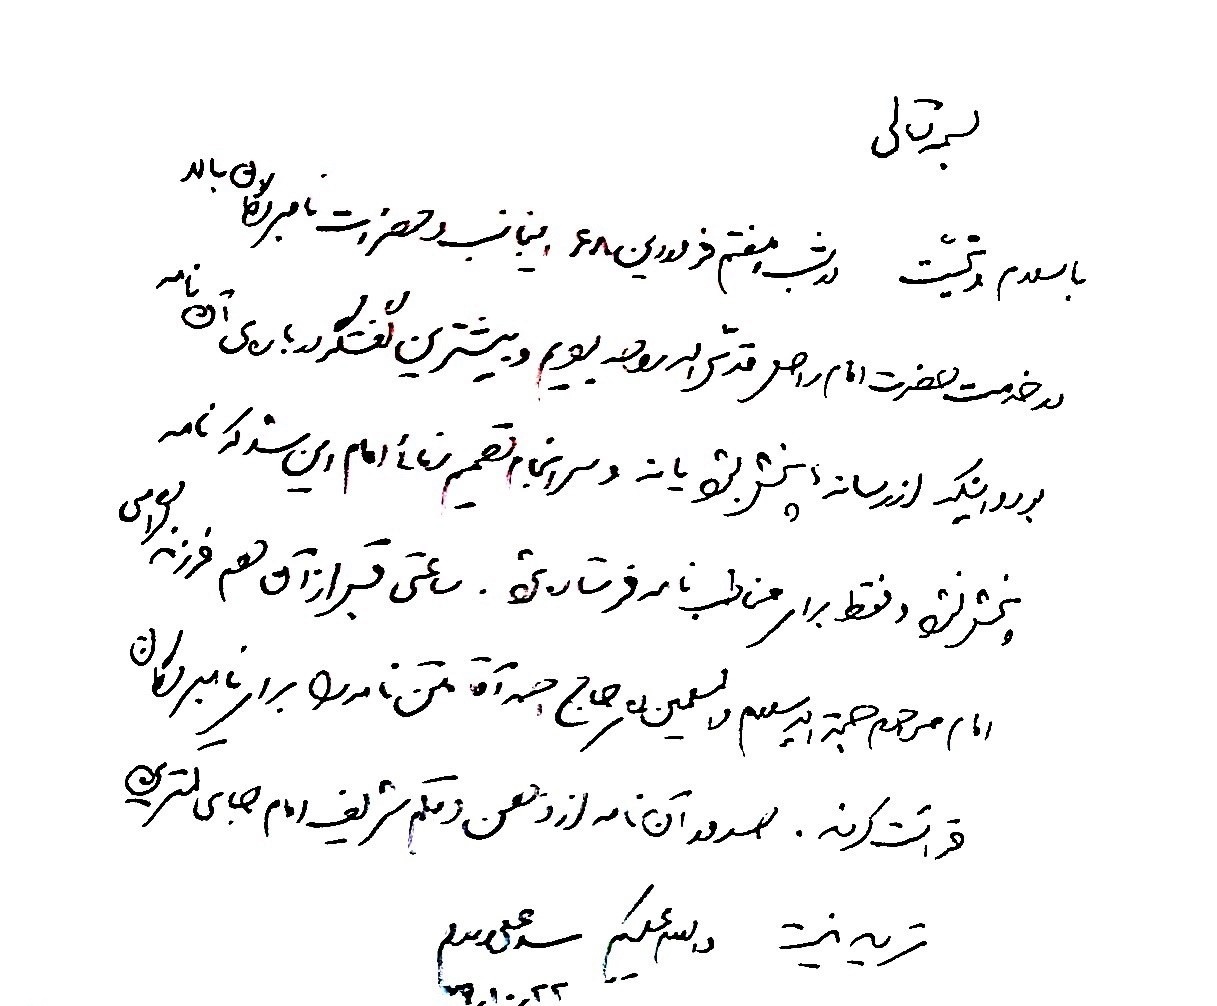 بسمه تعالی
با سلام و تحیّت در شب هفتم فروردین ۶۸ اینجانب و حضرات نامبردگان بالا
در خدمت حضرت امام راحل قدّس الله روحه بودیم و بیشترین گفتگو درباره‌ی آن نامه
بود و اینکه از رسانه‌ها پخش بشود یا نه و سرانجام تصمیم امام این شد که نامه
پخش نشود و فقط برای مخاطب نامه فرستاده شود. ساعتی قبل از آن هم فرزند گرامی
امام مرحوم حجة الاسلام والمسلمین حاج احمد آقا متن نامه را برای نامبردگان
قرائت کردند. صدور آن نامه از ذهن و قلم شریف امام جای کمترین
تردید نیست والسلام علیکم سید علی
۷۹،۱۰،۲۲